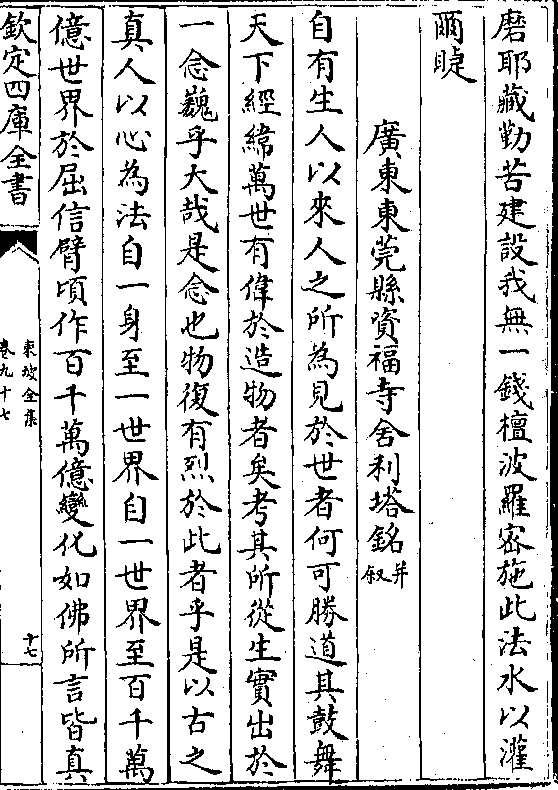 磨耶藏勤苦建設我無一錢檀波羅密施此法水以灌
爾睫
廣東東莞縣資福寺舍利塔銘并叙
自有生人以來人之所為見於世者何可勝道其鼓舞
天下經緯萬世有偉於造物者矣考其所從生實出於
一念巍乎大哉是念也物復有烈於此者乎是以古之
真人以心為法自一身至一世界自一世界至百千萬
億世界於屈信臂頃作百千萬億變化如佛所言皆真
欽定四庫全書
東坡全集
卷九十七
十七